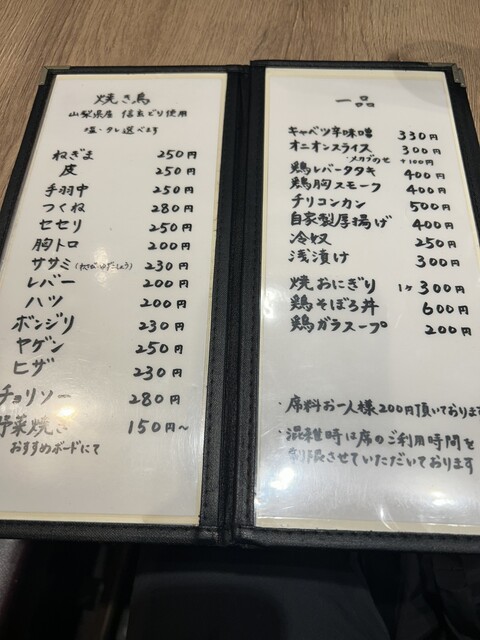 焼き鳥
山梨県産 信玄どり使用
塩・タレ選べます
ねぎま 250円
皮 250円
手羽中 250円
つくね 280円
セセリ 250円
胸トロ 200円
ササミ(わさびゆずこしょう) 230円
レバー 200円
ハツ 200円
ボンジリ 230円
ヤゲン 250円
ヒザ 230円
チョリソー 280円
野菜焼き 150円~
おすすめボードにて
一品
キャベツ辛味噌 330円
オニオンスライス 300円
メカブのせ +100円
鶏レバータタキ 400円
鶏胸スモーク 400円
チリコンカン 500円
自家製厚揚げ 400円
冷奴 250円
浅漬け 300円
焼おにぎり 1ケ 300円
鶏そぼろ丼 600円
鶏ガラスープ 200円
・席料お一人様200円頂いております
・混雑時は席のご利用時間を
制限させていただいております